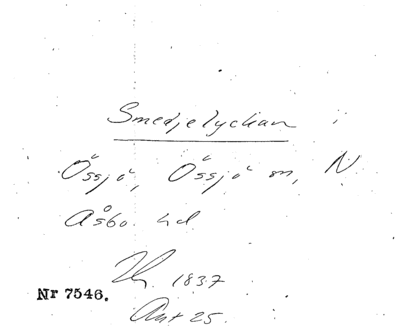 Smedjelyckan
Össjö, Össjö sn, N
Åsbo hd
1837
Nr 7546.
Ant 25.